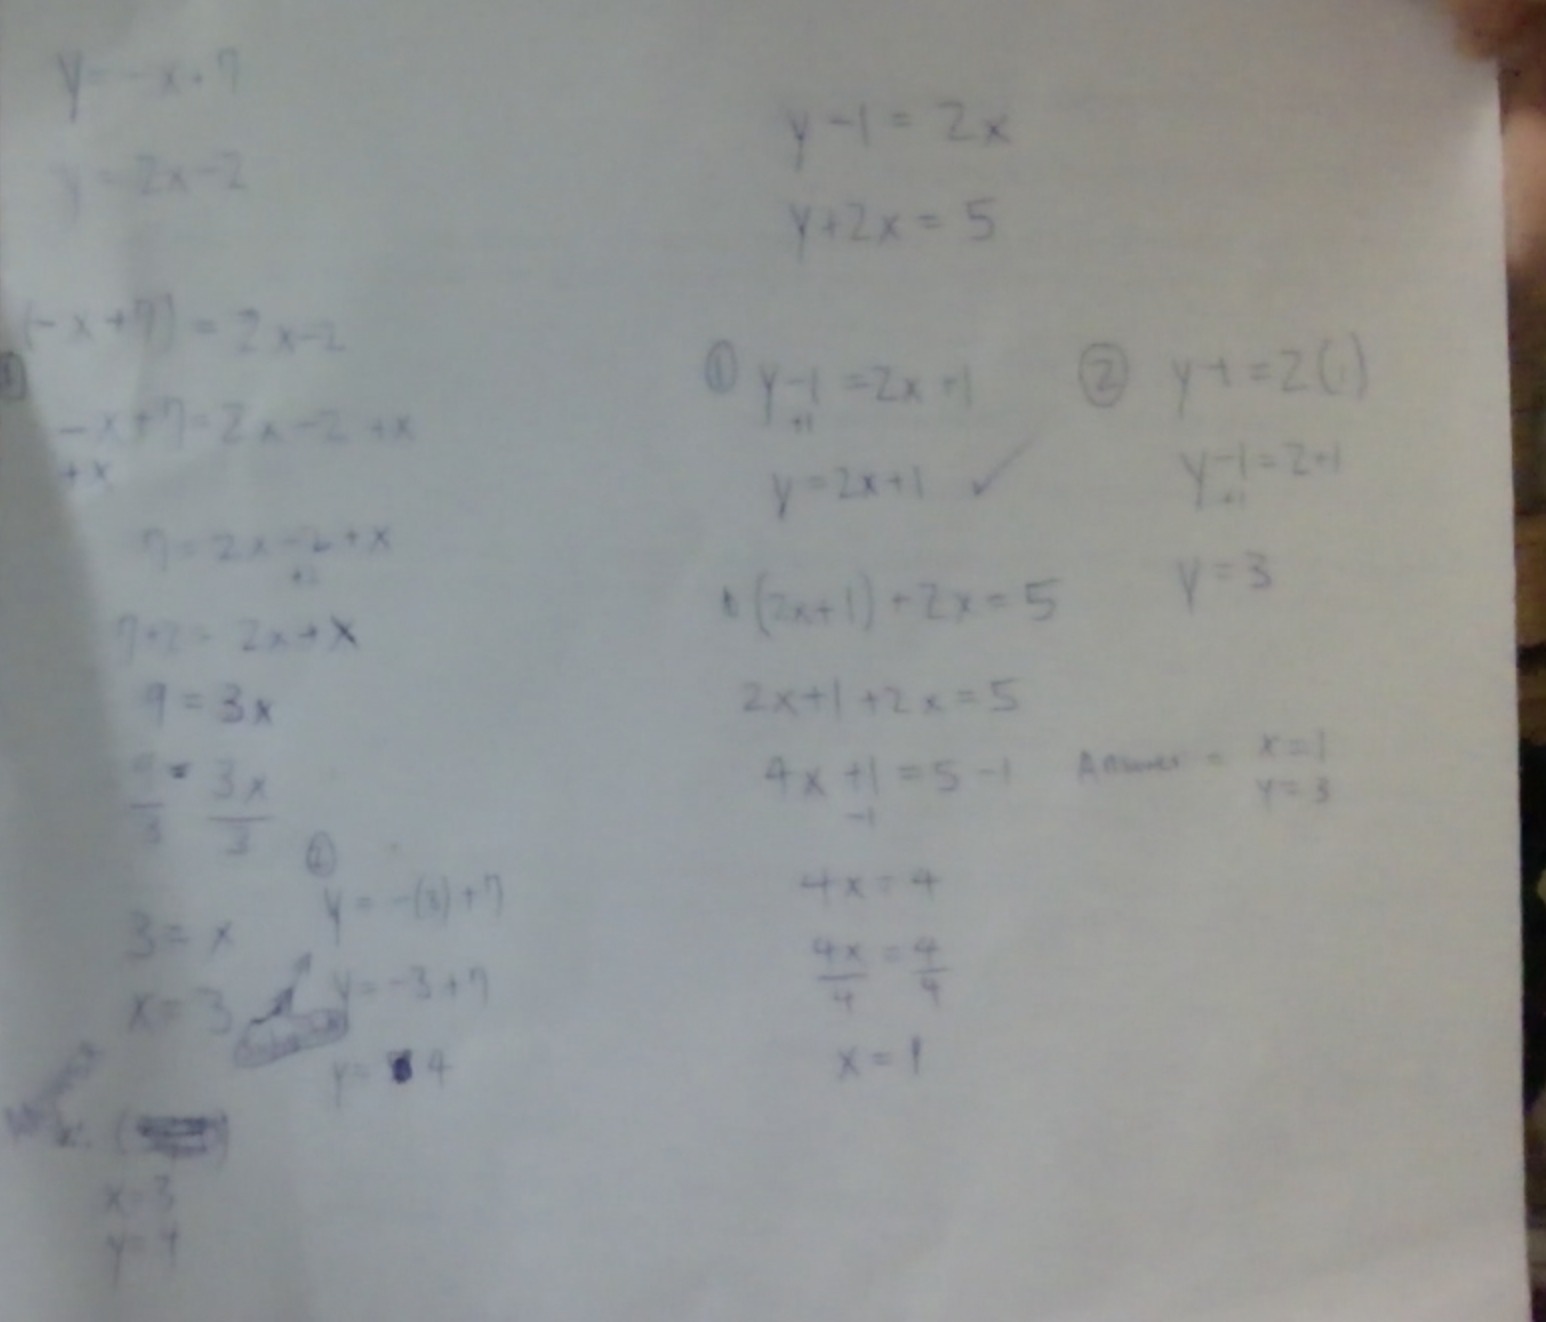 y = -x + 7
y = 2x-2
(-x+7) = 2x-2
①
-x+7 = 2x-2 +x
+x
7 = 2x-2+x
+2
7+2 = 2x+x
9 = 3x
9/3 = 3x/3
3 = x
x = 3
②
y = -(3)+7
y = -3+7
y = 4
x = 3
y = 4
y-1 = 2x
y+2x = 5
① y-1 = 2x +1
+1
y = 2x+1 ✓
(2x+1) + 2x = 5
2x+1 +2x = 5
4x +1 = 5 -1
-1
4x = 4
4x/4 = 4/4
x = 1
② y-1 = 2(1)
y-1 = 2+1
+1
y = 3
Answer = x = 1
y = 3